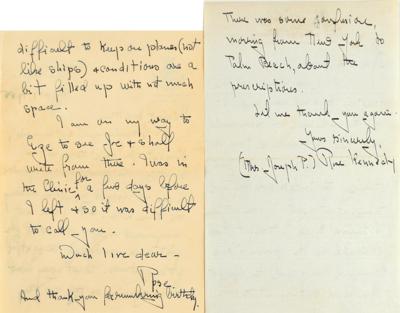 difficult to keep on planes (not
like ships) & conditions are a
bit filled up with not much
space.
I am on my way to
Eze to see Joe & shall
write from there. I was in
the Clinic for a few days before
I left & so it was difficult
to call you.
Much love dear -
Rose
And thank you for remembering birthday.
There was some confusion,
moving from New York to
Palm Beach, about the
prescriptions.
Let me thank you again.
Yours sincerely,
(Mrs. Joseph P.) Rose Kennedy